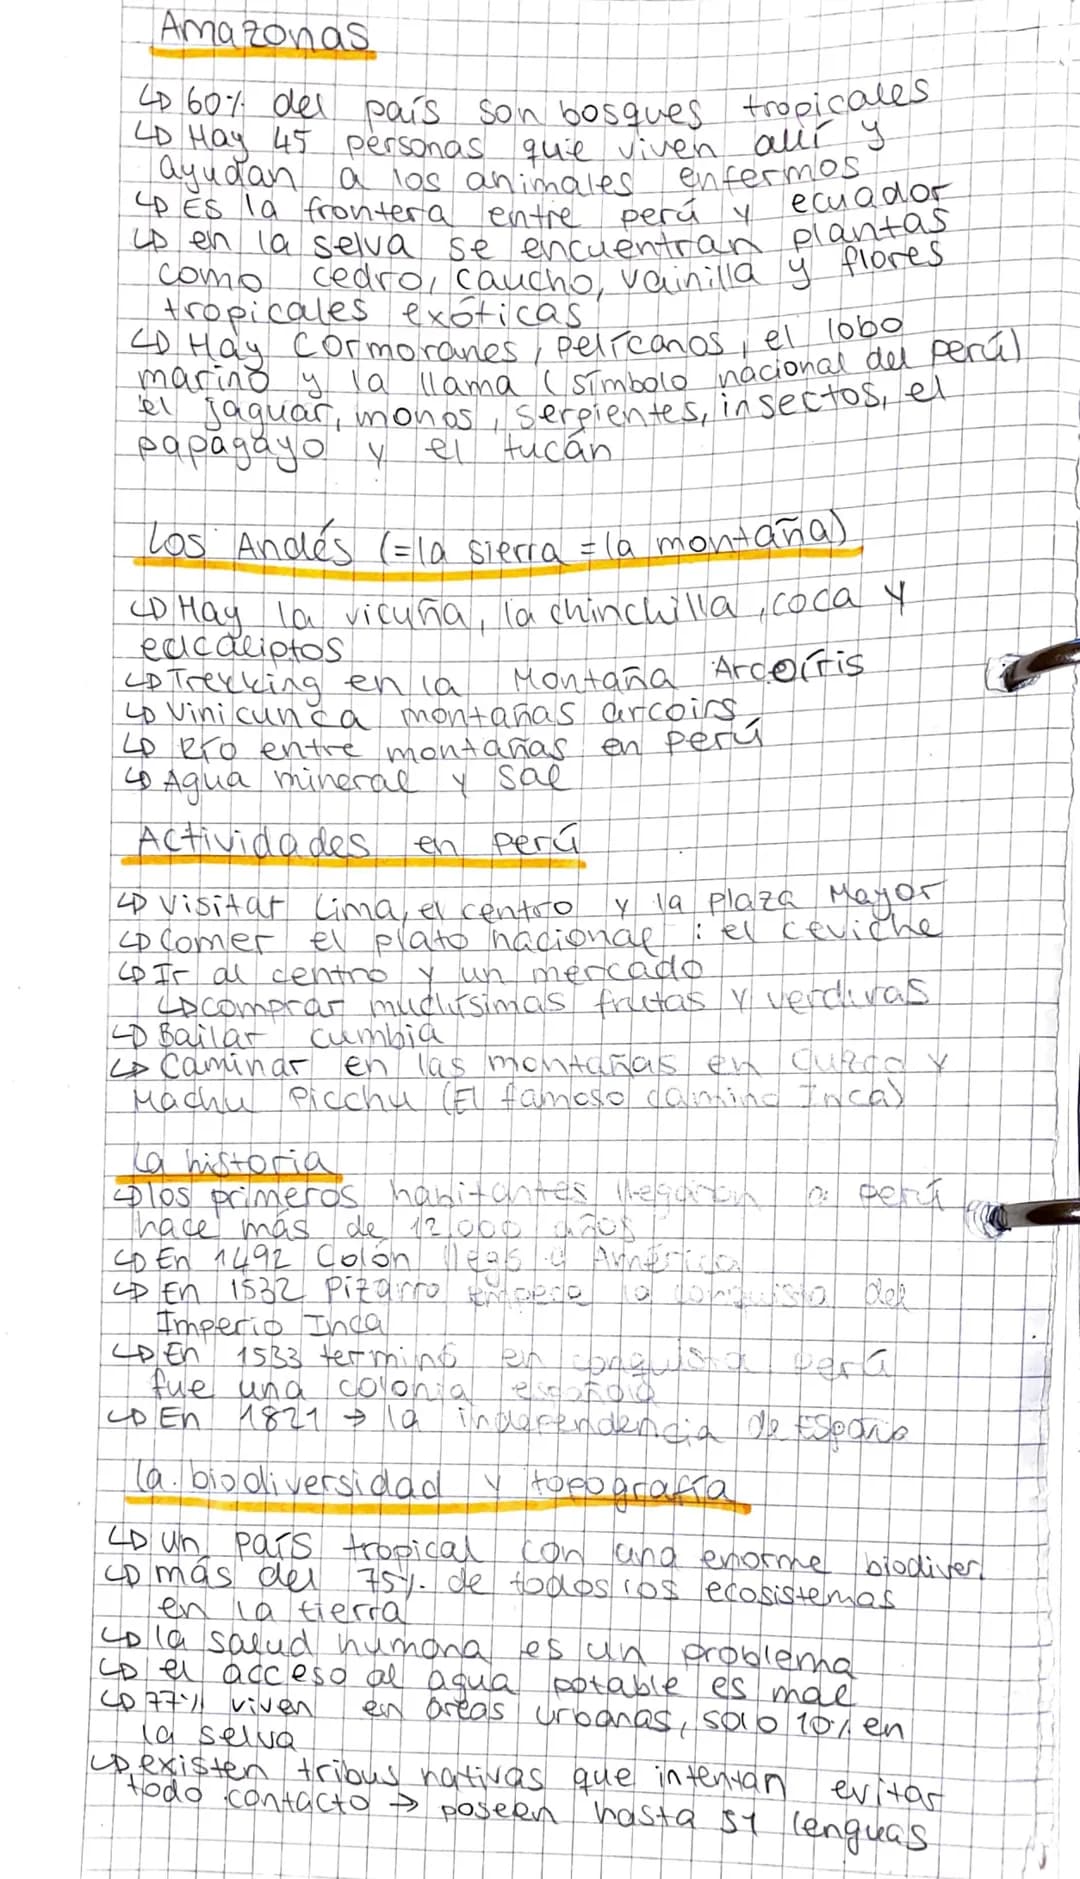 Amazonas
↳ 60% del país son bosques tropicales
↳ Hay 45 personas que viven allí y
ayudan a los animales enfermos
↳ Es la frontera entre perú y ecuador
↳ en la selva se encuentran plantas
como cedro, caucho, vainilla y flores
tropicales exóticas
↳ Hay cormoranes, pelícanos, el lobo
marino y la llama (símbolo nacional del perú)
el jaguar, monos, serpientes, insectos, el
papagayo y el tucán
Los Andés (=la sierra =la montaña)
↳ Hay la vicuña, la chinchilla, coca y
eucaliptos
↳ Trekking en la Montaña Arcoíris
↳ Vinicunca montañas arcoirs
↳ Río entre montañas en perú
↳ Agua mineral y sal
Actividades en perú
↳ visitar Lima, el centro y la plaza Mayor
↳ Comer el plato nacional : el ceviche
↳ Ir al centro y un mercado
↳ comprar muchísimas frutas y verduras
↳ Bailar cumbia
↳ Caminar en las montañas en Cuzco y
Machu Picchu (El famoso camino Inca)
La historia
↳ los primeros habitantes llegaron a perú
hace más de 12,000 años
↳ En 1492 Colón llegó a América
↳ En 1532 Pizarro empezó la conquista del
Imperio Inca
↳ En 1533 terminó en conquista, perú
fue una colonia española
↳ En 1821 → la independencia de España
La biodiversidad y topografía
↳ un país tropical con una enorme biodiver.
↳ más del 75% de todos los ecosistemas
en la tierra
↳ la salud humana es un problema
↳ el acceso al agua potable es mal
↳ 77% viven en áreas urbanas, solo 10% en
la selva
↳ existen tribus nativas que intentan evitar
todo contacto → poseen hasta 51 lenguas